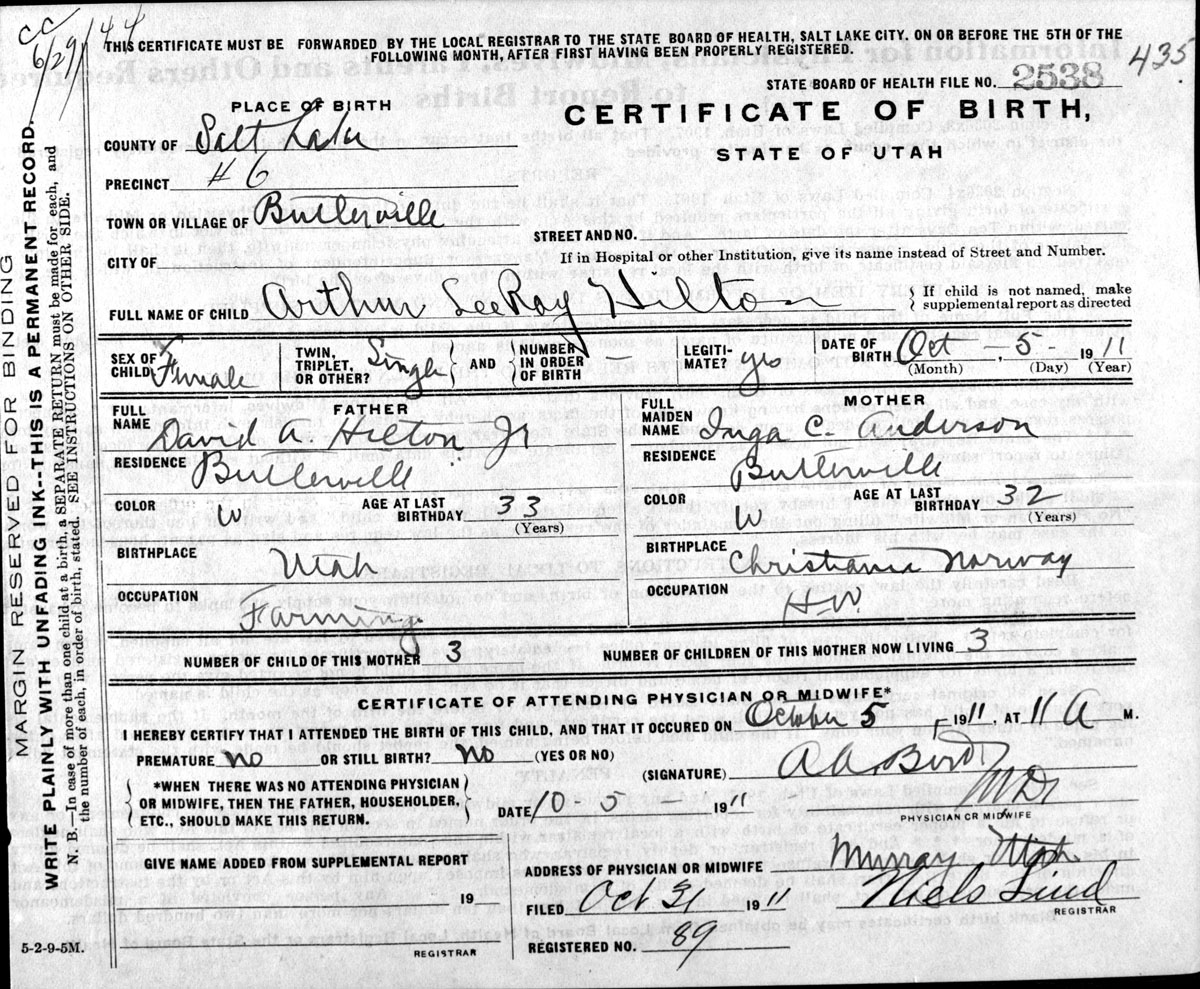 cc
6/29/44
THIS CERTIFICATE MUST BE FORWARDED BY THE LOCAL REGISTRAR TO THE STATE BOARD OF HEALTH, SALT LAKE CITY. ON OR BEFORE THE 5TH OF THE
FOLLOWING MONTH, AFTER FIRST HAVING BEEN PROPERLY REGISTERED.
435
STATE BOARD OF HEALTH FILE NO. 2538
PLACE OF BIRTH
CERTIFICATE OF BIRTH,
STATE OF UTAH
COUNTY OF Salt Lake
PRECINCT #6
TOWN OR VILLAGE OF Butlerville
STREET AND NO.
CITY OF
If in Hospital or other Institution, give its name instead of Street and Number.
FULL NAME OF CHILD Arthur LeeRay Hilton
{ If child is not named, make
supplemental report as directed
SEX OF CHILD Female
TWIN, TRIPLET, OR OTHER? Single } AND { NUMBER IN ORDER OF BIRTH —
LEGITI-MATE? yes
DATE OF BIRTH Oct - 5 - 1911
(Month) (Day) (Year)
FATHER
FULL NAME David A Hilton Jr
RESIDENCE Butlerville
COLOR W AGE AT LAST BIRTHDAY 33
(Years)
BIRTHPLACE Utah
OCCUPATION Farming
MOTHER
FULL MAIDEN NAME Inga C. Anderson
RESIDENCE Butlerville
COLOR W. AGE AT LAST BIRTHDAY 32
(Years)
BIRTHPLACE Christiania Norway
OCCUPATION H.W.
NUMBER OF CHILD OF THIS MOTHER 3 NUMBER OF CHILDREN OF THIS MOTHER NOW LIVING 3
CERTIFICATE OF ATTENDING PHYSICIAN OR MIDWIFE*
I HEREBY CERTIFY THAT I ATTENDED THE BIRTH OF THIS CHILD, AND THAT IT OCCURED ON October 5 1911, AT 11 A M.
PREMATURE no OR STILL BIRTH? no (YES OR NO)
(SIGNATURE) A.A. Bird
MD
PHYSICIAN OR MIDWIFE
{ *WHEN THERE WAS NO ATTENDING PHYSICIAN
OR MIDWIFE, THEN THE FATHER, HOUSEHOLDER,
ETC., SHOULD MAKE THIS RETURN. }
DATE 10-5 1911
GIVE NAME ADDED FROM SUPPLEMENTAL REPORT
, 19
REGISTRAR
ADDRESS OF PHYSICIAN OR MIDWIFE Murray Utah
FILED Oct 31 1911 Niels Lind
REGISTRAR
REGISTERED NO. 89
5-2-9-5M.
MARGIN RESERVED FOR BINDING
WRITE PLAINLY WITH UNFADING INK--THIS IS A PERMANENT RECORD.
N. B.—In case of more than one child at a birth, a SEPARATE RETURN must be made for each, and
the number of each, in order of birth, stated. SEE INSTRUCTIONS ON OTHER SIDE.